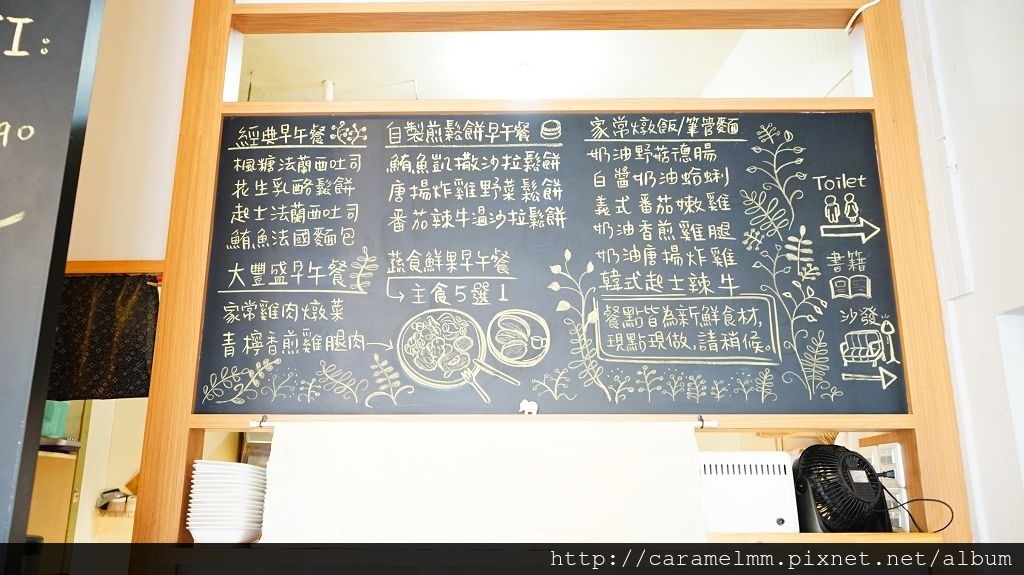 I:
90
經典早午餐
楓糖法蘭西吐司
花生乳酪鬆餅
起士法蘭西吐司
鮪魚法國麵包
大豐盛早午餐
家常雞肉燉菜
青檸香煎雞腿肉
自製煎鬆餅早午餐
鮪魚凱撒沙拉鬆餅
唐揚炸雞野菜鬆餅
番茄辣牛溫沙拉鬆餅
蔬食鮮果早午餐
主食5選1
家常燉飯/筆管麵
奶油野菇德腸
白醬奶油蛤蜊
義式番茄嫩雞
奶油香煎雞腿
奶油唐揚炸雞
韓式起士辣牛
餐點皆為新鮮食材,
現點現做,請稍候。
Toilet
書籍
沙發
http://caramelmm.pixnet.net/album